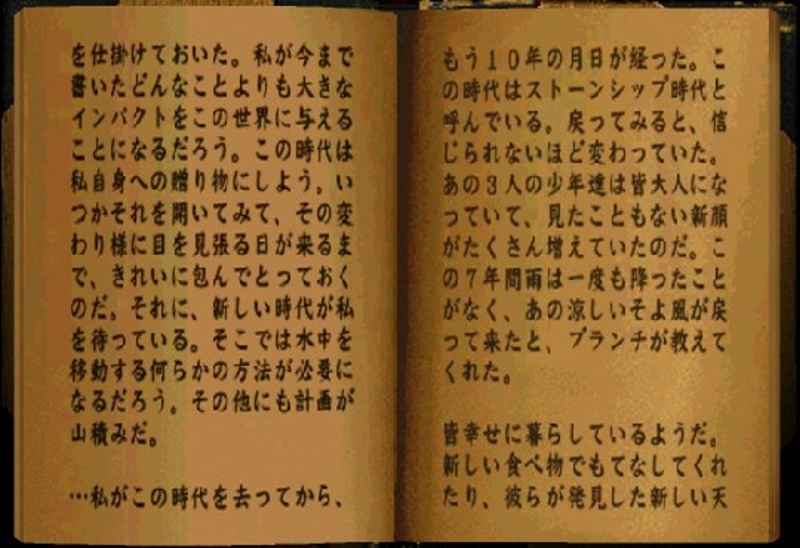 を仕掛けておいた。私が今まで
書いたどんなことよりも大きな
インパクトをこの世界に与える
ことになるだろう。この時代は
私自身への贈り物にしよう。い
つかそれを開いてみて、その変
わり様に目を見張る日が来るま
で、きれいに包んでとっておく
のだ。それに、新しい時代が私
を待っている。そこでは水中を
移動する何らかの方法が必要に
なるだろう。その他にも計画が
山積みだ。
…私がこの時代を去ってから、
もう１０年の月日が経った。こ
の時代はストーンシップ時代と
呼んでいる。戻ってみると、信
じられないほど変わっていた。
あの３人の少年達は皆大人にな
っていて、見たこともない新顔
がたくさん増えていたのだ。こ
の７年間雨は一度も降ったこと
がなく、あの涼しいそよ風が戻
って来たと、ブランチが教えて
くれた。
皆幸せに暮らしているようだ。
新しい食べ物でもてなしてくれ
たり、彼らが発見した新しい天